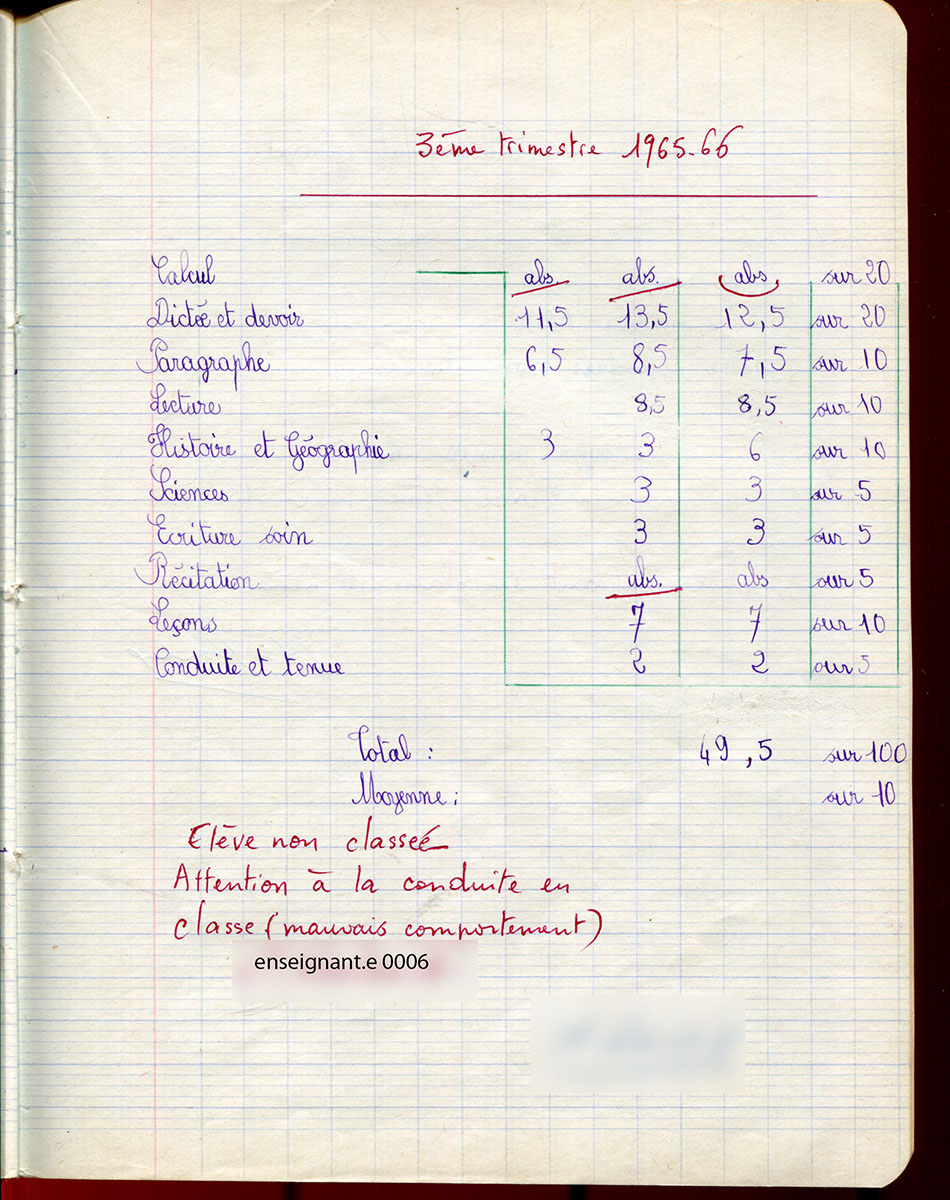 3ème trimestre 1965-66
Calcul abs. abs. abs. sur 20
Dictée et devoir 11,5 13,5 12,5 sur 20
Paragraphe 6,5 8,5 7,5 sur 10
Lecture 8,5 8,5 sur 10
Histoire et Géographie 3 3 6 sur 10
Sciences 3 3 sur 5
Ecriture soin 3 3 sur 5
Récitation abs. abs sur 5
Leçons 7 7 sur 10
Conduite et tenue 2 2 sur 5
Total : 49,5 sur 100
Moyenne : sur 10
Elève non classeé
Attention à la conduite en
classe (mauvais comportement)
enseignant.e 0006